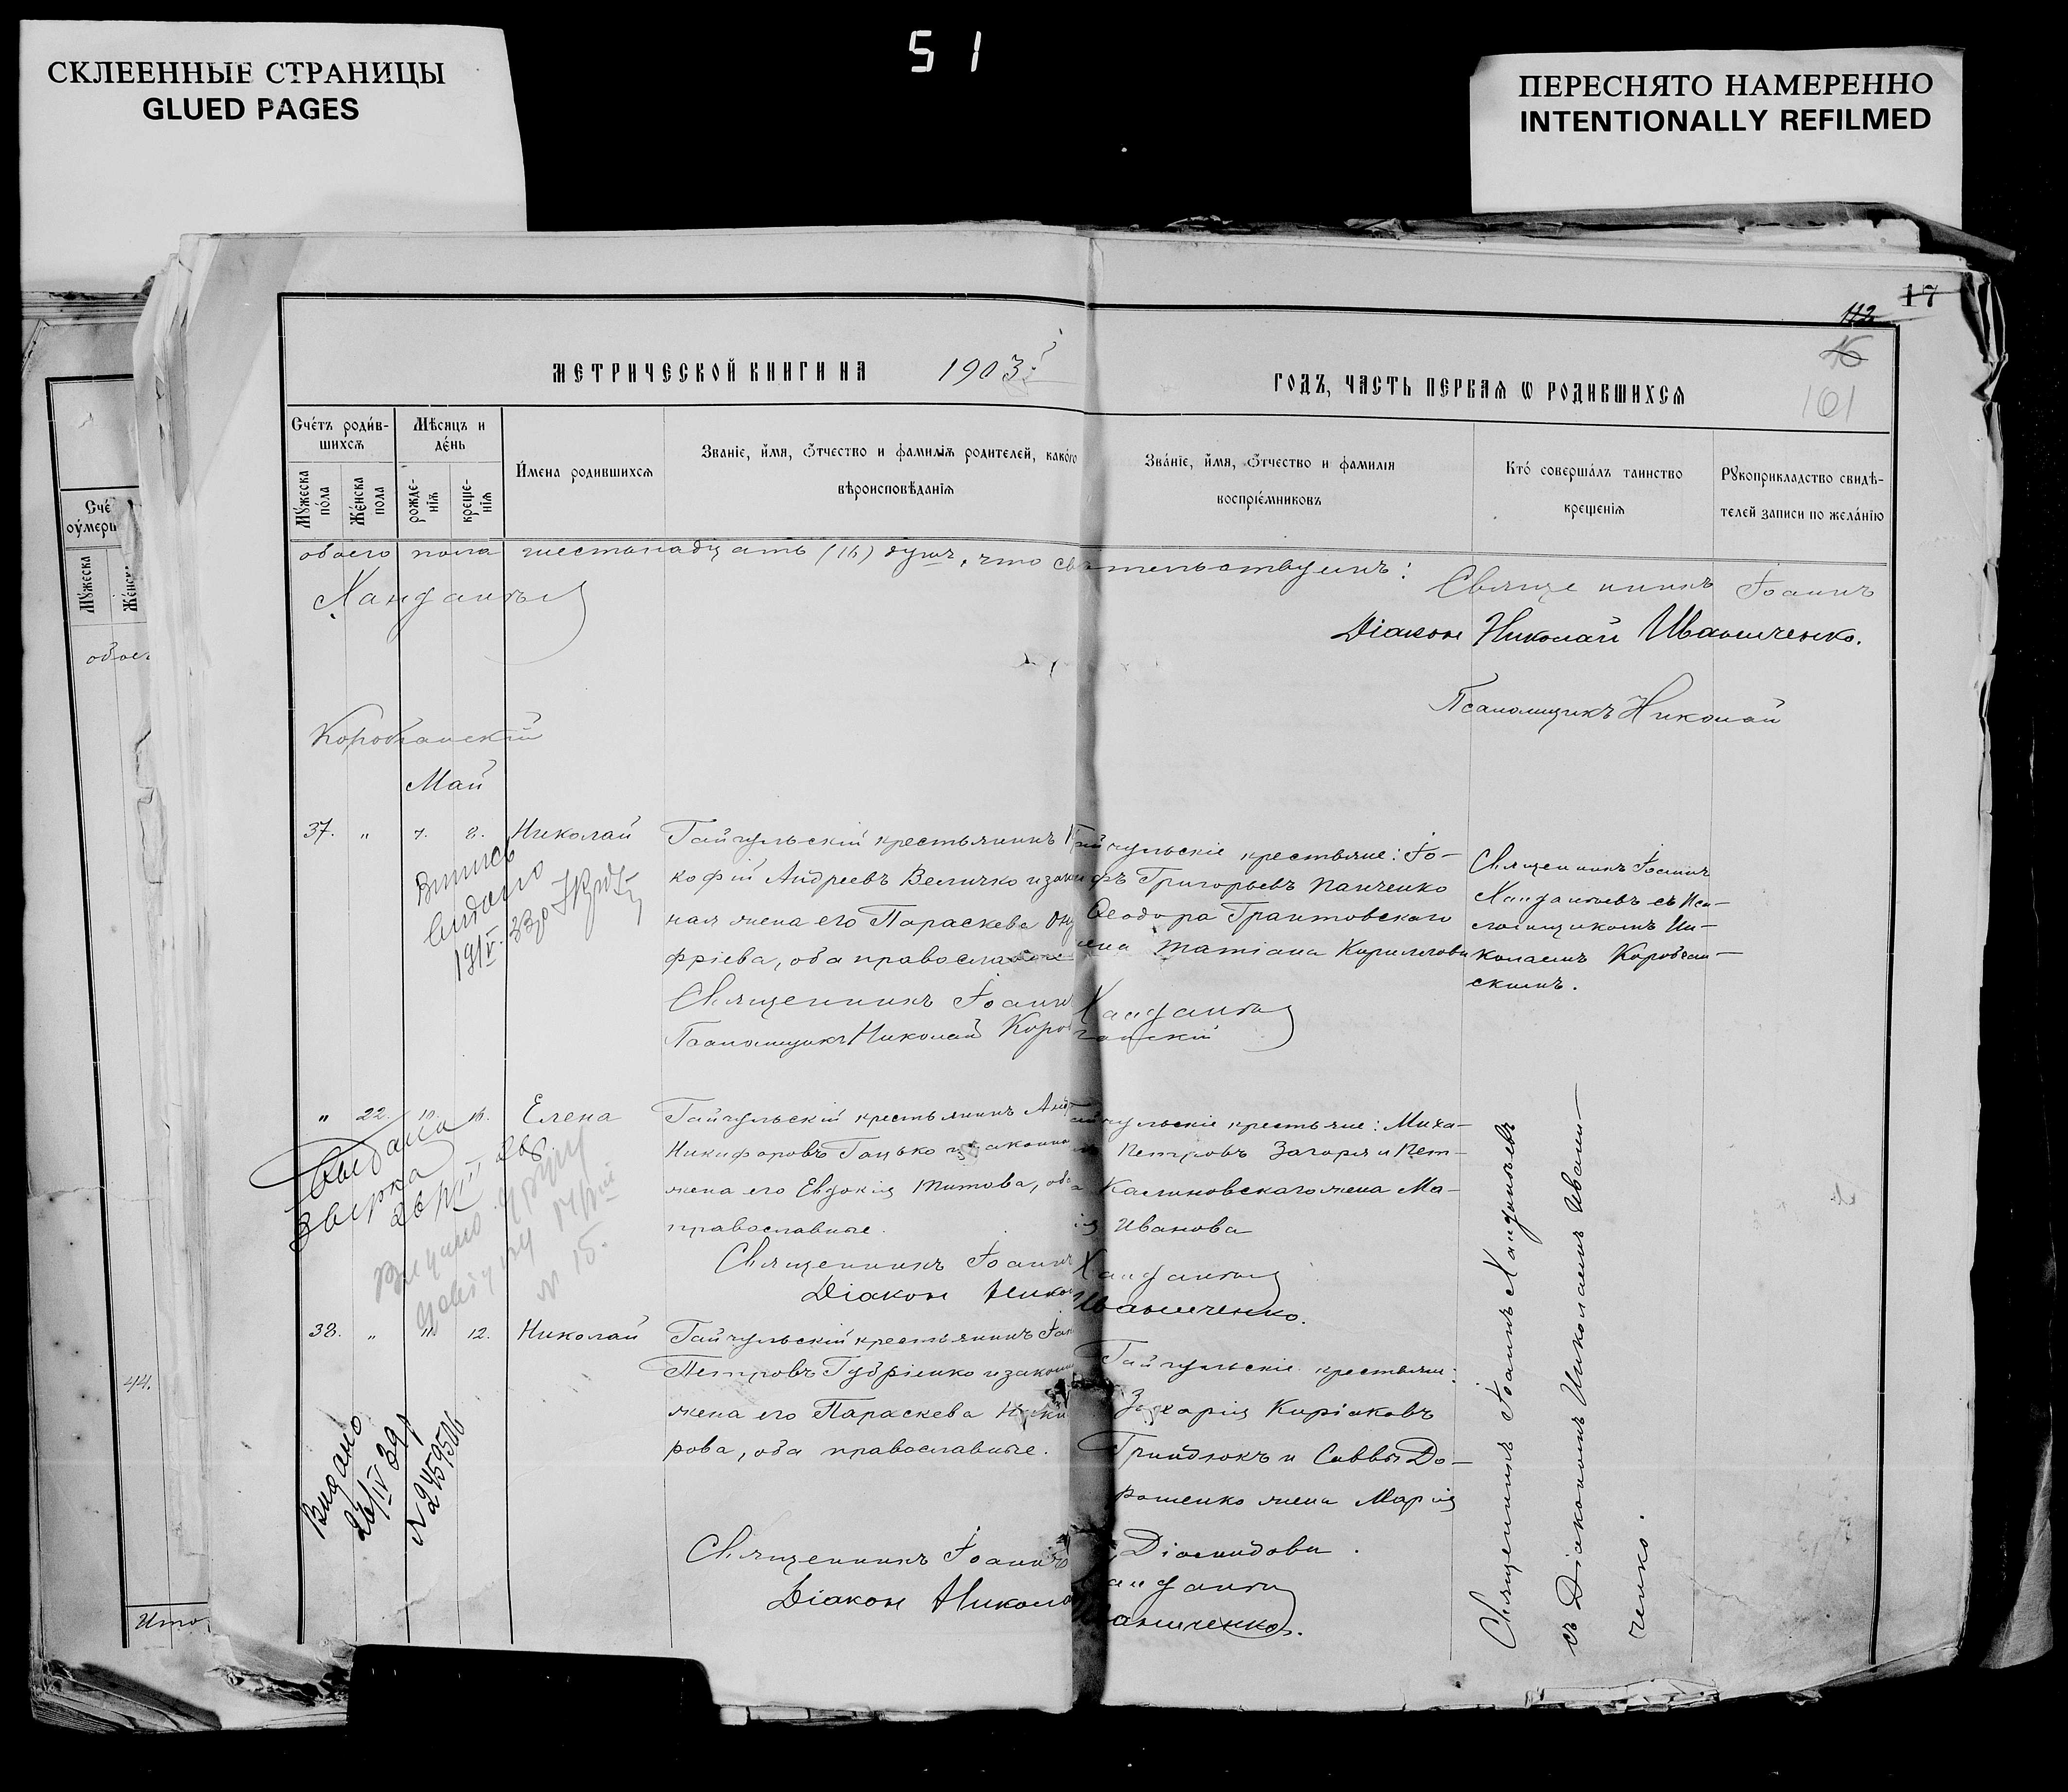 СКЛЕЕННЫЕ СТРАНИЦЫ
GLUED PAGES
51
ПЕРЕСНЯТО НАМЕРЕННО
INTENTIONALLY REFILMED
17
112
16
101
МЕТРИЧЕСКОЙ КНИГИ НА 1903
ГОДЪ, ЧАСТЬ ПЕРВАЯ Ѡ РОДИВШИХСЯ
Счетъ родив-
шихся
Мужеска
пола
Женска
пола
Мѣсяцъ и
день
рожде-
нія
креще-
нія
Имена родившихся
Званіе, имя, отчество и фамилія родителей, какого
вѣроисповѣданія
Званіе, имя, отчество и фамилія
воспріемниковъ
Кто совершалъ таинство
крещенія
Рукоприкладство свидѣ-
телей записи по желанію
обоего пола шестьнадцать (16) душъ, что свѣтельствуемъ:
Священникъ Іоаннъ
Хандантовъ
Діаконъ Николай Иванченко.
Псаломщикъ Николай
Коробчанскій
Май
37. " 7. 8. Николай
Гайчульскій крестьянинъ
кофій Андреевъ Величко и закон
ная жена его Параскева Ону
фріева, оба православные
Священникъ Іоаннъ Хандантовъ
Псаломщикъ Николай Коробчанскій
Гайчульскіе крестьяне: Іо-
фъ Григорьевъ Панченко
Ѳеодора Грантовскаго
жена Татіана Кириллова
Священникъ Іоаннъ
Хандантовъ съ Пса-
ломщикомъ Ни-
колаемъ Коробчан-
скимъ.
" 22. 10. 11. Елена
Гайчульскій крестьянинъ Анд
Никифоровъ Гацько и законна
жена его Евдокія Титова, оба
православные.
Священникъ Іоаннъ Хандантовъ
Діаконъ Николай Иванченко.
Гайчульскіе крестьяне: Миха-
Петровъ Загоря и Пет-
Калиновскаго жена Ма-
ія Иванова
Выдана
38. " 11. 12. Николай
Гайчульскій крестьянинъ
Петровъ Гудріенко и законн
жена его Параскева
рова, оба православные.
Священникъ Іоаннъ Хандантовъ
Діаконъ Николай Иванченко.
Гайчульскіе крестьяне:
Захарія Киріаковъ
Гриндюкъ и Саввы До-
рошенко жена Марія
Діомидова.
Священникъ Іоаннъ Хандантовъ
съ Діакономъ Николаемъ Иванни-
ченко.
Видано
26/IV 39
44.
Ито